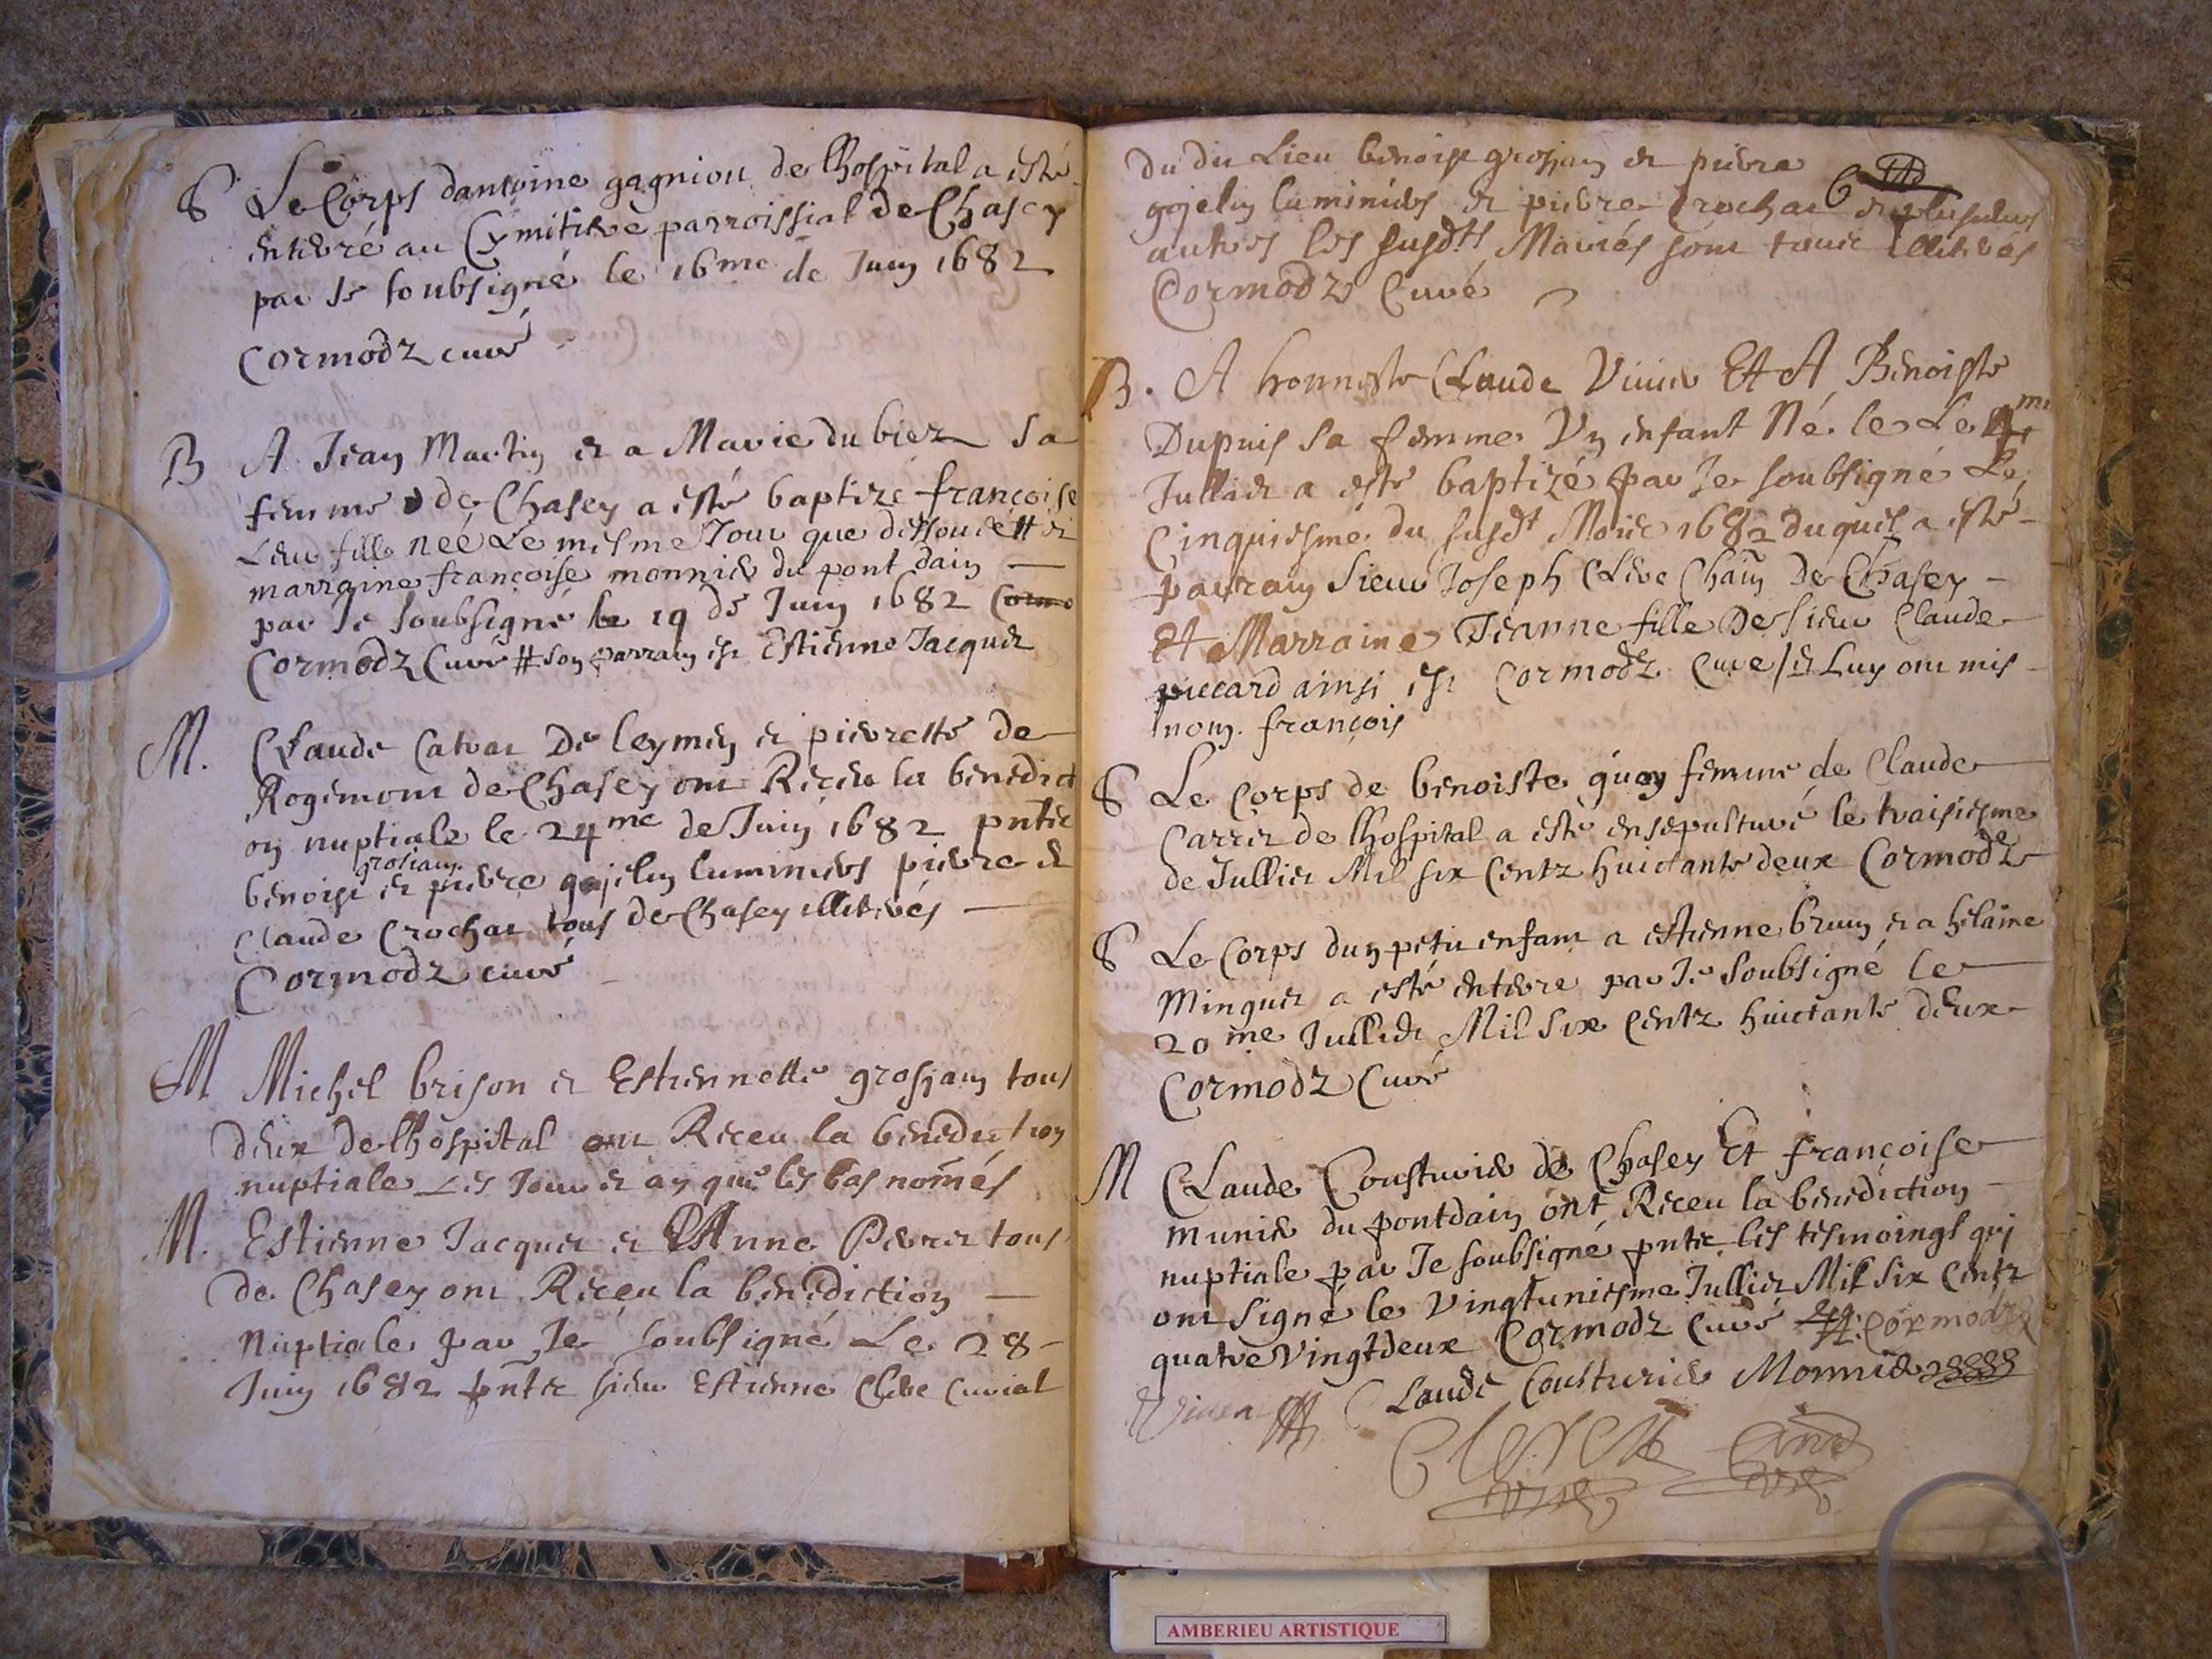 S Le Corps dantoine gagniou de lhospital a esté
enterré au Cymitiere parroissial de Chasey
par Je soubsigné le 16me de Juin 1682
Cormodz curé
B A Jean Martin et a Marie du biez sa
femme de Chasey a esté baptizé françoise
Leur fille née Le mesme Jour que dessoue # et
marraine françoise monnier du pont dain
par Je soubsigné le 19 de Juin 1682 Cormo
Cormodz Curé # son parrain est Estienne Jacquet
M. Claude Catvat De leymen et pierrette de
Rogemont de Chasey ont Receu la benedict
on nuptiale le 24me de Juin 1682 pntz
grosjean
benoist et pierre gojelin luminiers pierre et
Claude Crochat tous de Chasey illiterés
Cormodz curé
M Michel brison et Estiennette grosjean tous
deux de lhospital ont Receu la benediction
nuptiale Les Jour et an que les bas només
M. Estienne Jacquet et Anne Perret tous
de Chasey ont Receu la benediction
Nuptiale par Je soubsigné Le 28
Juin 1682 pntz sieur Estienne Clere curial
du dit Lieu benoist grosjean et pierre
gojelin luminiers et pierre Crochat et plusieurs
autres les susdts Mariés sont touts illiterés
Cormodz Curé
B. A honneste Claude Vivier Et A Benoiste
Dupuis sa femme Un enfant Né le Le 4me
Julliet a esté baptizé par Je soubsigné Le
Cinquiesme du susdt Mois 1682 duquel a esté
parrain sieur Joseph Clere Chain De Chasey
Et Marraine Jeanne fille De sieur Claude
piccard ainsi est Cormodz Curé / et Luy ont mis
nom françois
S Le Corps de benoiste guoy femme de Claude
Carrier de lhospital a esté ensepulturé le troisiesme
de Julliet Mil six Centz huictante deux Cormodz
S Le Corps dun petit enfant a estienne brun et a helaine
Minguet a esté enterre par Je Soubsigné le
20me Julliet Mil Six Centz huictante deux
Cormodz Curé
M Claude Cousturier de Chasey Et françoise
munier du pontdain ont Receu la benediction
nuptiale par Je soubsigné pntz les tesmoingt qui
ont Signé le Vingtuniesme Julliet Mil Six Centz
quatre Vingtdeux Cormodz curé Cormodz
Claude Cousturier Monnier
Clere
AMBERIEU ARTISTIQUE